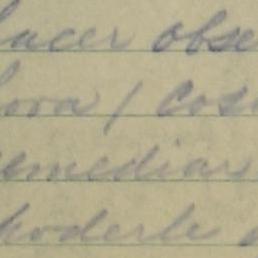 hacer obse
hora / Cos
remediar
poderle